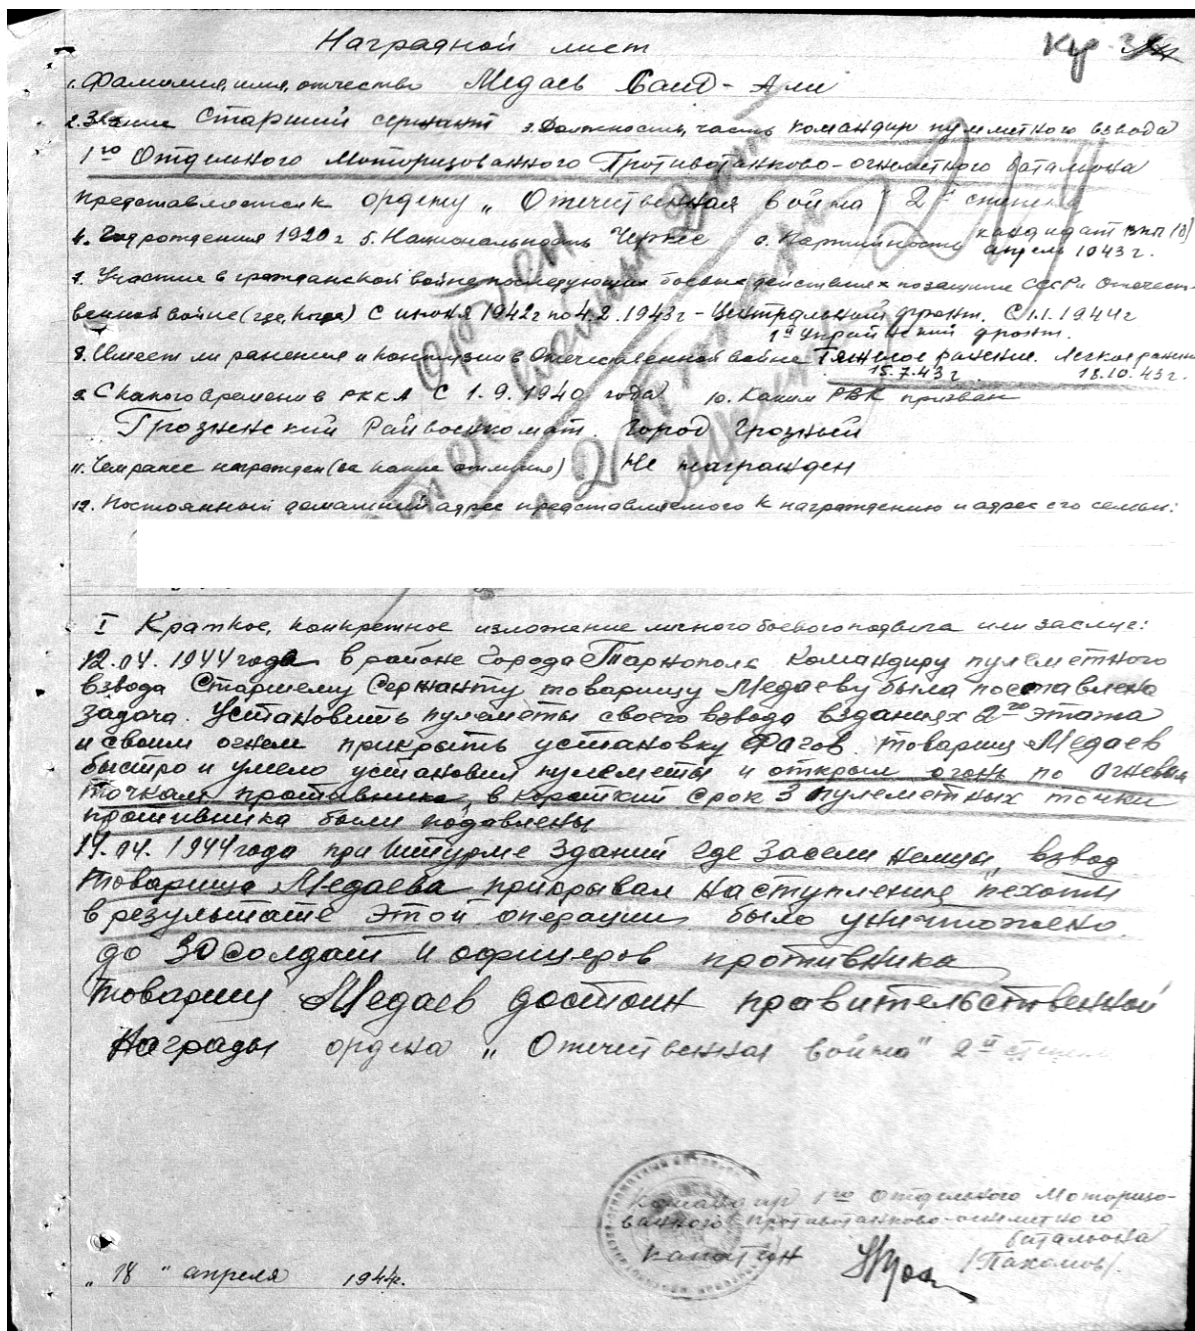 Наградной лист
1. Фамилия, имя, отчество Медаев Саид-Али
2. Звание Старший сержант 3. Должность, часть командир пулеметного взвода
1го Отдельного Моторизованного Противотанково-огнеметного батальона
представляется к ордену „Отечественная война" 2й степени
4. Год рождения 1920 г 5. Национальность Черкес 6. Партийность кандидат ВКП(б)
апрель 1943 г.
7. Участие в гражданской войне последующих боевых действиях по защите СССР и Отечест-
венной войне (где, когда) С июня 1942 г по 4.2.1943 г - Центральный фронт. С 1.1.1944 г
1й Украинский фронт.
8. Имеет ли ранения и контузии в Отечественной войне Тяжелое ранение. Легкое ранение
15.7.43 г. 18.10.43 г.
9. С какого времени в РККА С 1.9.1940 года 10. Каким РВК призван
Грозненский Райвоенкомат. Город Грозный
11. Чем ранее награжден (за какие отличия) Не награжден
12. Постоянный домашний адрес представляемого к награждению и адрес его семьи:
I Краткое, конкретное изложение личного боевого подвига или заслуг:
12.04.1944 года в районе Города Тарнополь Командиру пулеметного
взвода Старшему Сержанту товарищу Медаеву была поставлена
задача. Установить пулеметы своего взвода в зданиях 2го этажа
и своим огнем прикрыть установку Фагов. Товарищ Медаев
быстро и умело установил пулеметы и открыл огонь по Огневым
точкам противника, в короткий срок 3 пулеметных точки
противника были подавлены
14.04.1944 года при Штурме Зданий где Засели немцы, взвод
Товарища Медаева прикрывал наступление пехоты
в результате этой операции было уничтожено
до 30 солдат и офицеров противника
Товарищ Медаев достоин правительственной
Награды ордена „Отечественная война" 2й степени
Командир 1го Отдельного Моторизо-
ванного противотанково-огнеметного
батальона
Капитан /Пахомов/.
„18" апреля 1944 г.